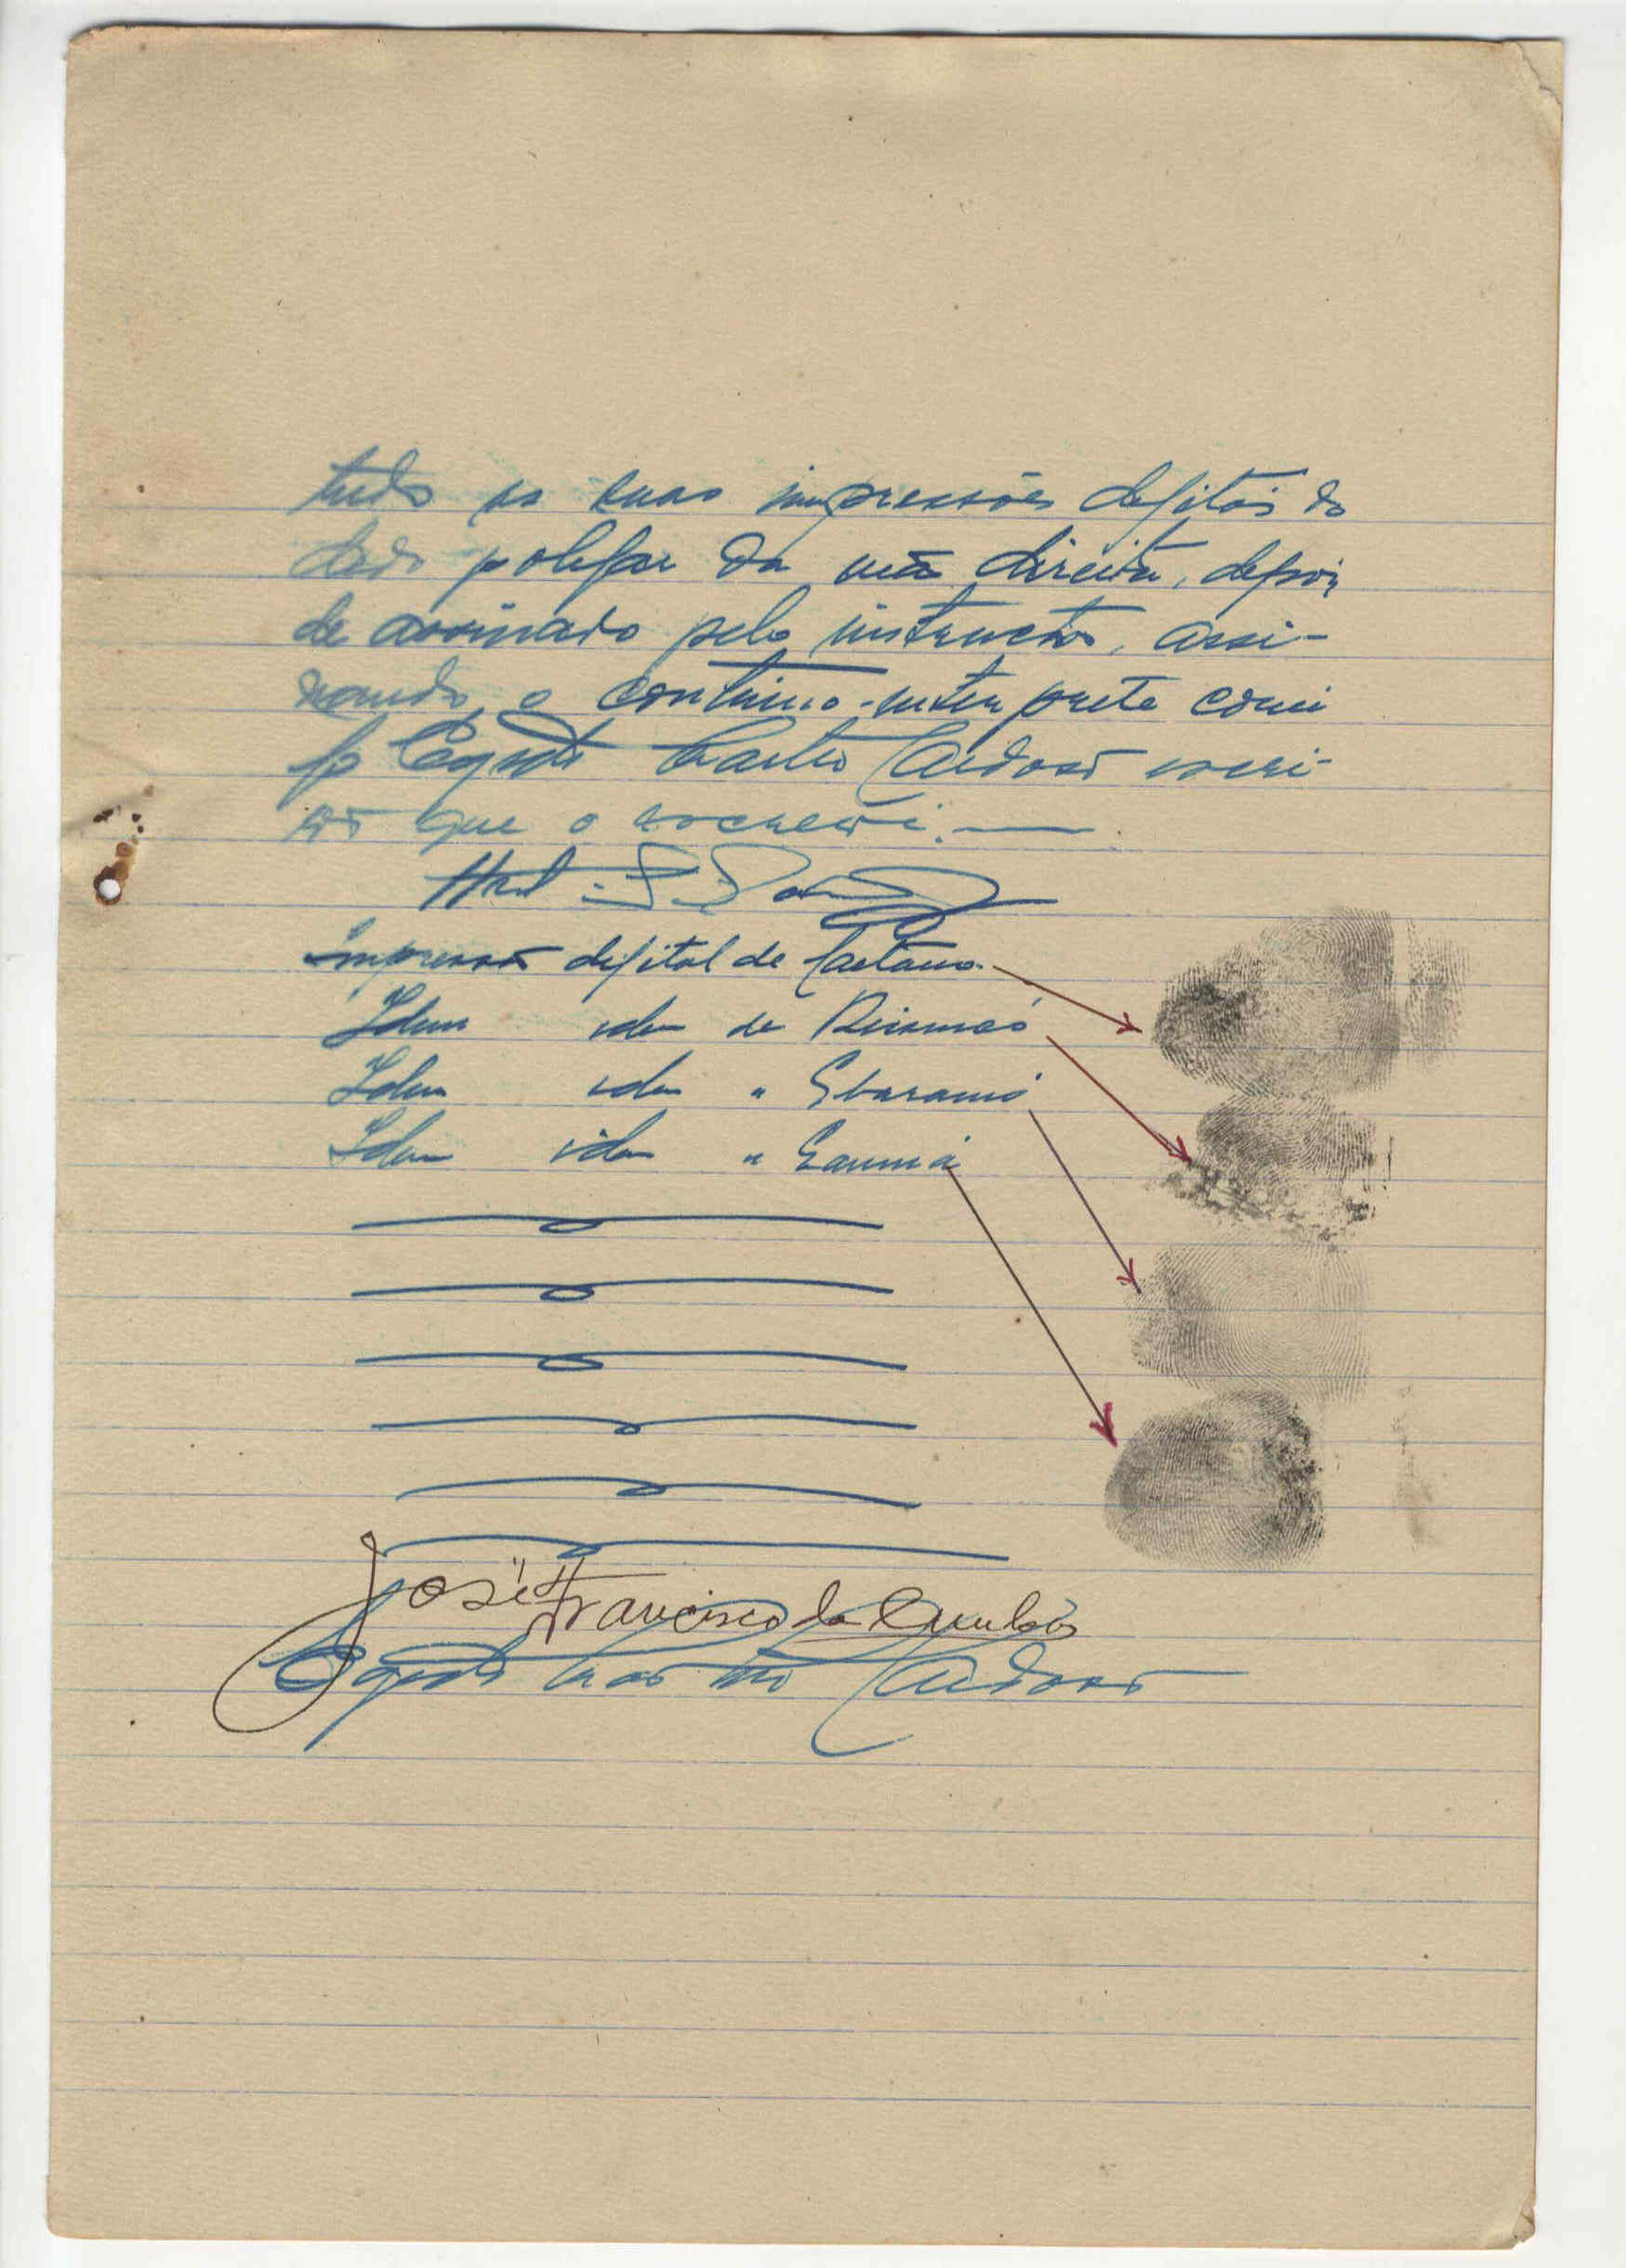 tudo as suas impressões digitais do
dedo polegar da mão direita, depois
de assinado pelo instructor, assi-
nando o continuo-interprete comi
go Egydio Castro Cardoso escri-
vão que o escrevi.
Impressão digital de Caetano.
Idem idem de
Idem idem " Ebaramó
Idem idem "
José Francisco da
Egydio Castro Cardoso